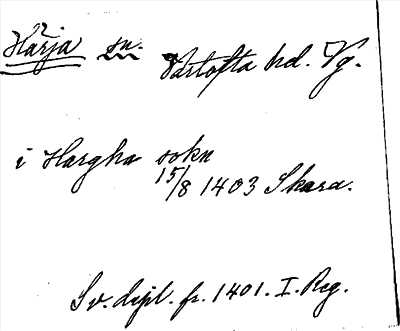 Härja sn. Vartofta hd. Vg.
i Hargha sokn
15/8 1403 Skara.
Sv. dipl. fr. 1401. I. Reg.